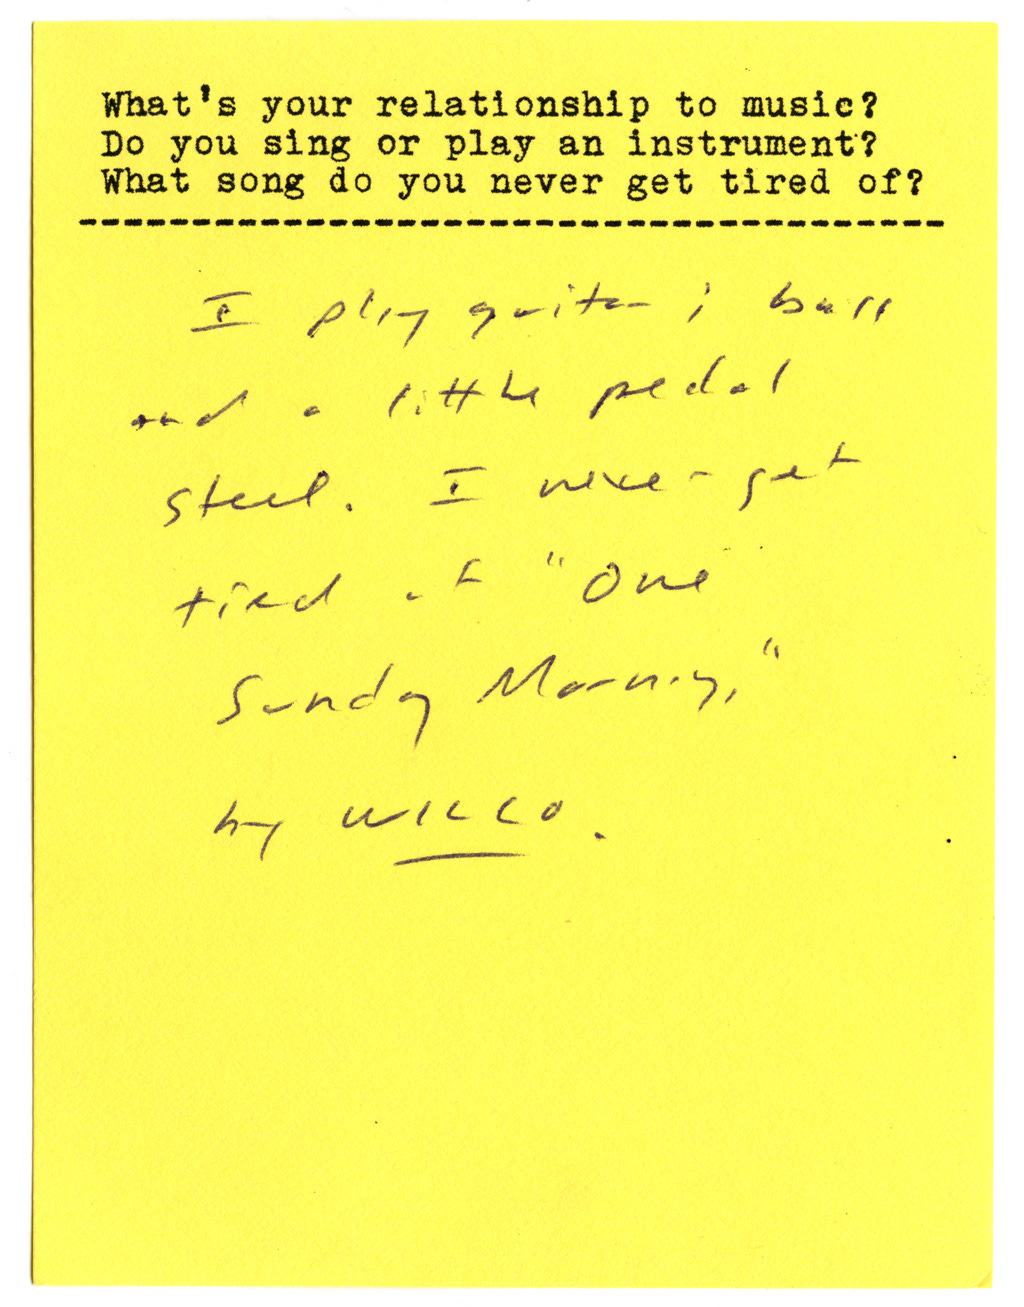 What's your relationship to music?
Do you sing or play an instrument?
What song do you never get tired of?
I play guitar ; bass
and a little pedal
steel. I never get
tired of "One
Sunday Morning,"
by WILCO.